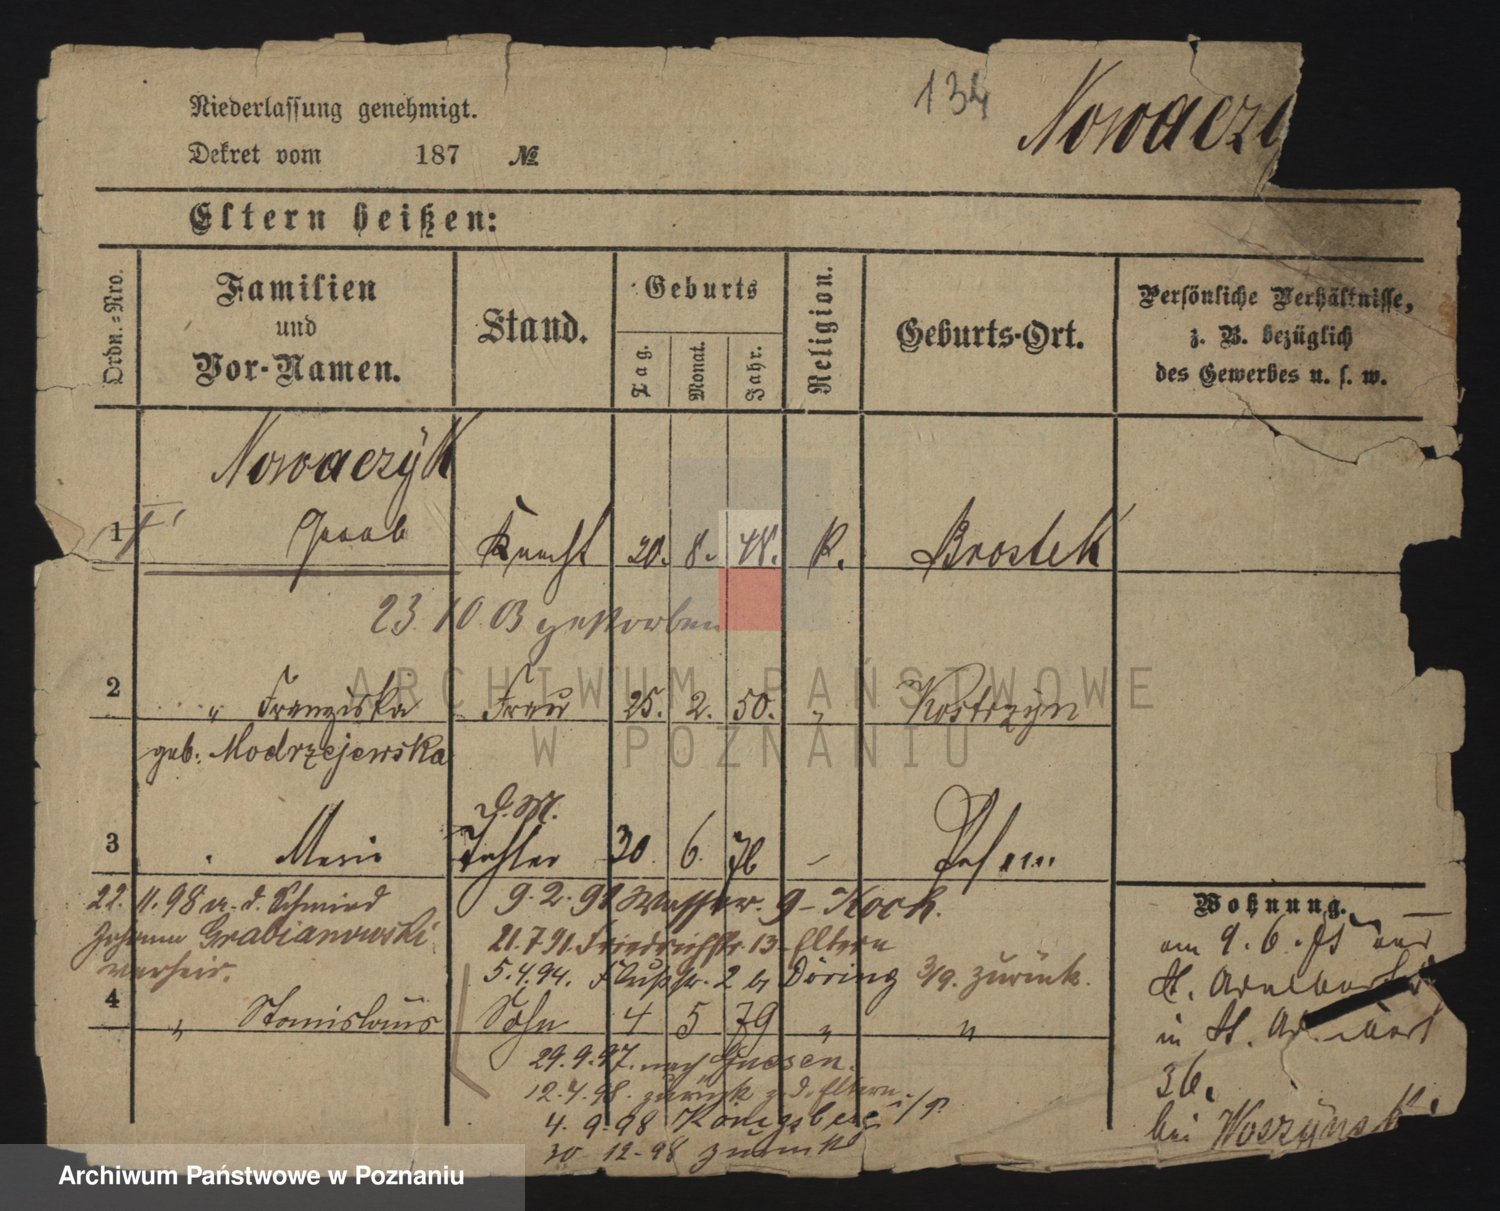 Niederlassung genehmigt.
134
Nowaczy
Dekret vom 187 №
Eltern heißen:
Ordn.-Nro.
Familien
und
Vor-Namen.
Stand.
Geburts
Tag.
Monat.
Jahr.
Religion.
Geburts-Ort.
Persönliche Verhältnisse,
z. B. bezüglich
des Gewerbes u. s. w.
Nowaczyk
1 Jacob Knecht 20. 8. 48. K. Brostek
23 10 03 gestorben
2 " Franziska Frau 25. 2. 50. " Kostrzyn
geb. Modrzejewska
D. M.
3 Marie Tochter 30. 6. 76 Posen
22. 11. 98 a. d. Schmied
9. 2. 91 Wasserstr. 9 - Koch.
Johann Grabianowski
21. 7. 91. Friedrichstr. 13 Eltern
verheir.
5. 4. 94. Flußstr. 2 b Döring 3/9. zurück.
4 " Stanislaus Sohn 4 5 79 " "
29. 9. 97. nach Gnesen.
12. 4. 98. zurück z. d. Eltern
4. 9. 98 Königsberg i/P.
30 12 - 98 zurück
Wohnung.
am 9. 6. 75 aus
St. Adalbert
in St. Adalbert
36.
bei Woszynski
ARCHIWUM PAŃSTWOWE
W POZNANIU
Archiwum Państwowe w Poznaniu